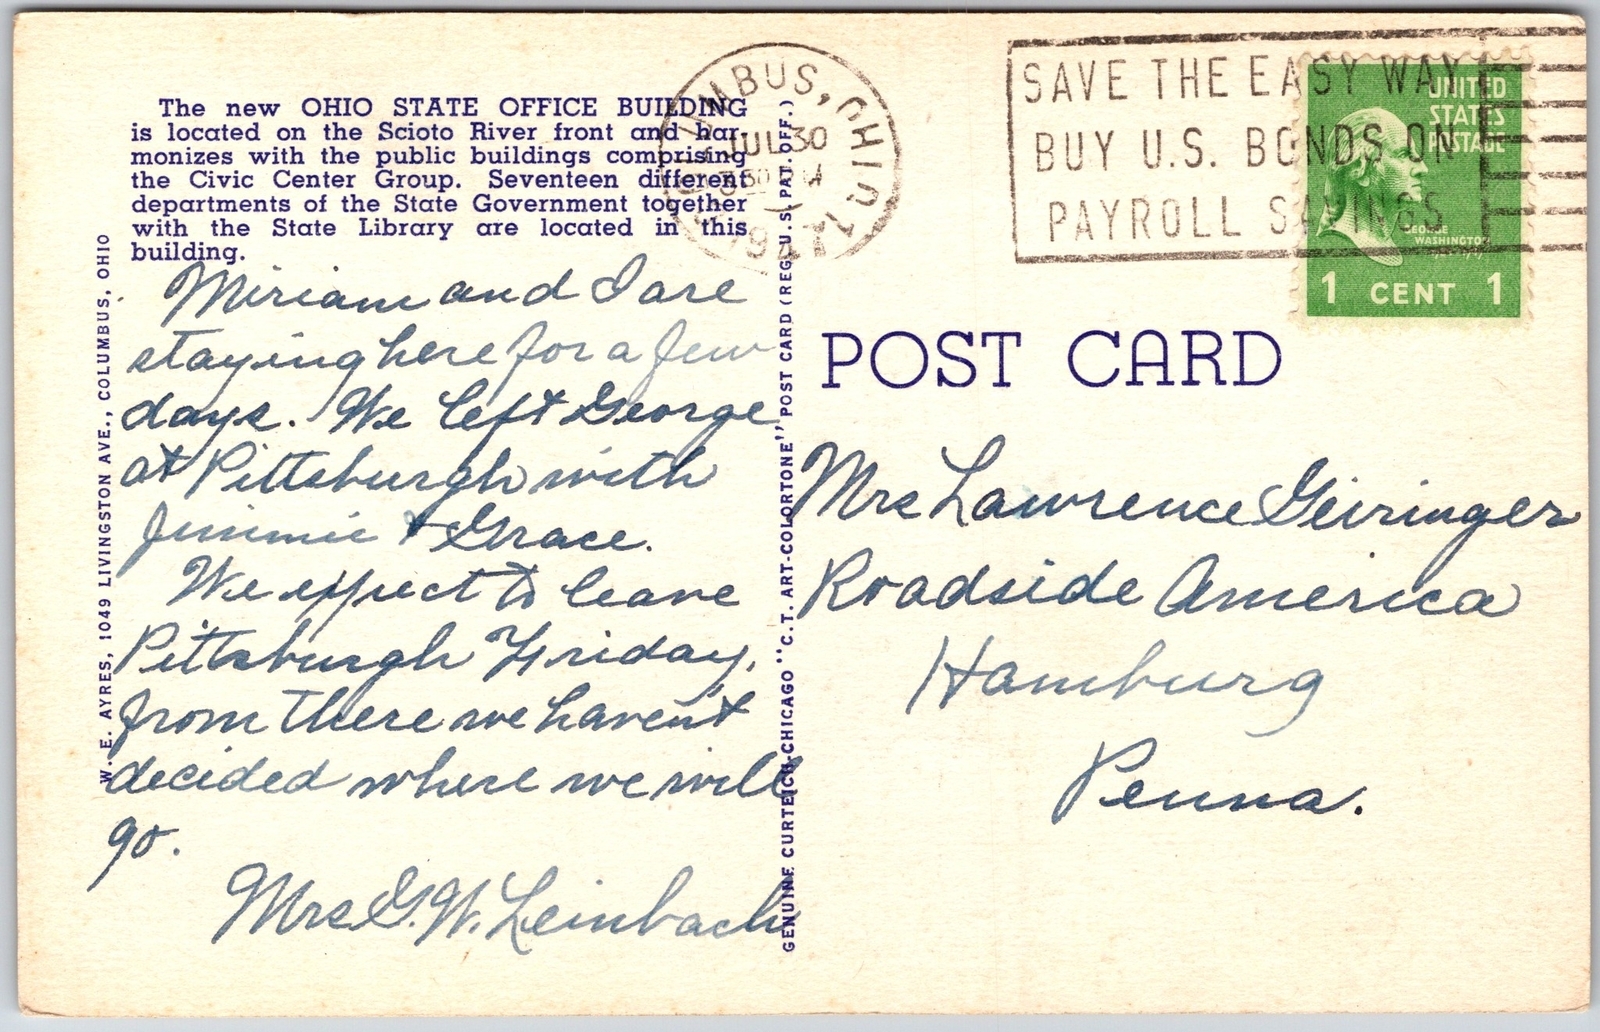 The new OHIO STATE OFFICE BUILDING
is located on the Scioto River front and har-
monizes with the public buildings comprising
the Civic Center Group. Seventeen different
departments of the State Government together
with the State Library are located in this
building.
Miriam and I are
staying here for a few
days. We left George
at Pittsburgh with
Jimmie & Grace.
We expect to leave
Pittsburgh Friday,
from there we haven't
decided where we will
go.
Mrs G. W. Leinbach
W. E. AYRES, 1049 LIVINGSTON AVE., COLUMBUS, OHIO
GENUINE CURTEICH-CHICAGO "C.T. ART-COLORTONE" POST CARD (REG. U.S. PAT. OFF.)
COLUMBUS, OHIO
JUL 30
3 30 PM
1947
SAVE THE EASY WAY
BUY U.S. BONDS ON
PAYROLL SAVINGS
UNITED
STATES
POSTAGE
GEORGE
WASHINGTON
1 CENT 1
POST CARD
Mrs Lawrence Geiringer
Roadside America
Hamburg
Penna.